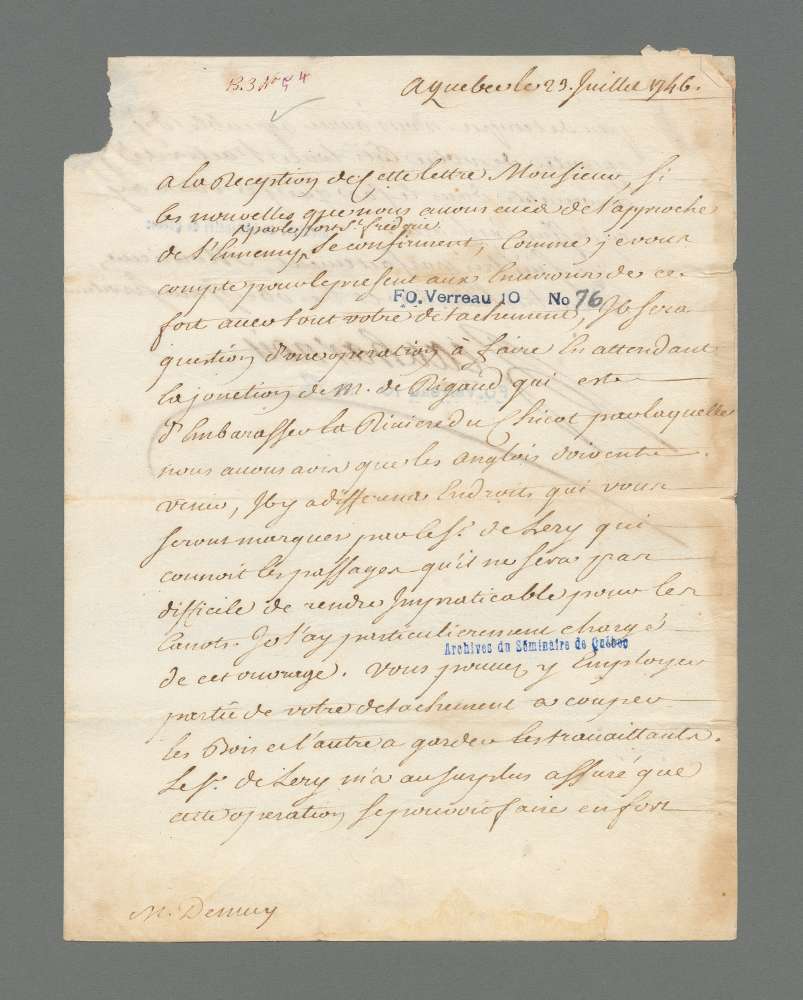 B.3 No 54
a quebec le 23. Juillet 1746.
a la Reception de Cette lettre Monsieur, si
les nouvelles que nous auons eües de l'approche
par le fort St. frederic
de l'Ennemy, Se confirment, Comme je vous
compte pour le present aux Environs de ce
FO. Verreau 10 No 76
fort auec tout votre detachement, Il sera
question d'une operation à faire En attendant
la jonction de M. de Rigaud qui est
d'Embarasser la Riviere du Chicot par laquelle
nous auons avis que les anglois doivent
venir, Il y a differens Endroits qui vous
seront marques par le Sr. de Lery qui
connoit les passages qu'il ne sera pas
difficile de rendre Impraticable pour les
Canots. Je l'ay particulierement chargé
Archives du Séminaire de Québec
de cet ouvrage. vous pouuez y Employer
partie de votre detachement a couper
les Bois et l'autre a garder les trauaillants.
Le Sr. de Lery m'a au surplus assuré que
cette operation se pouvoit faire en fort
M. Demuy